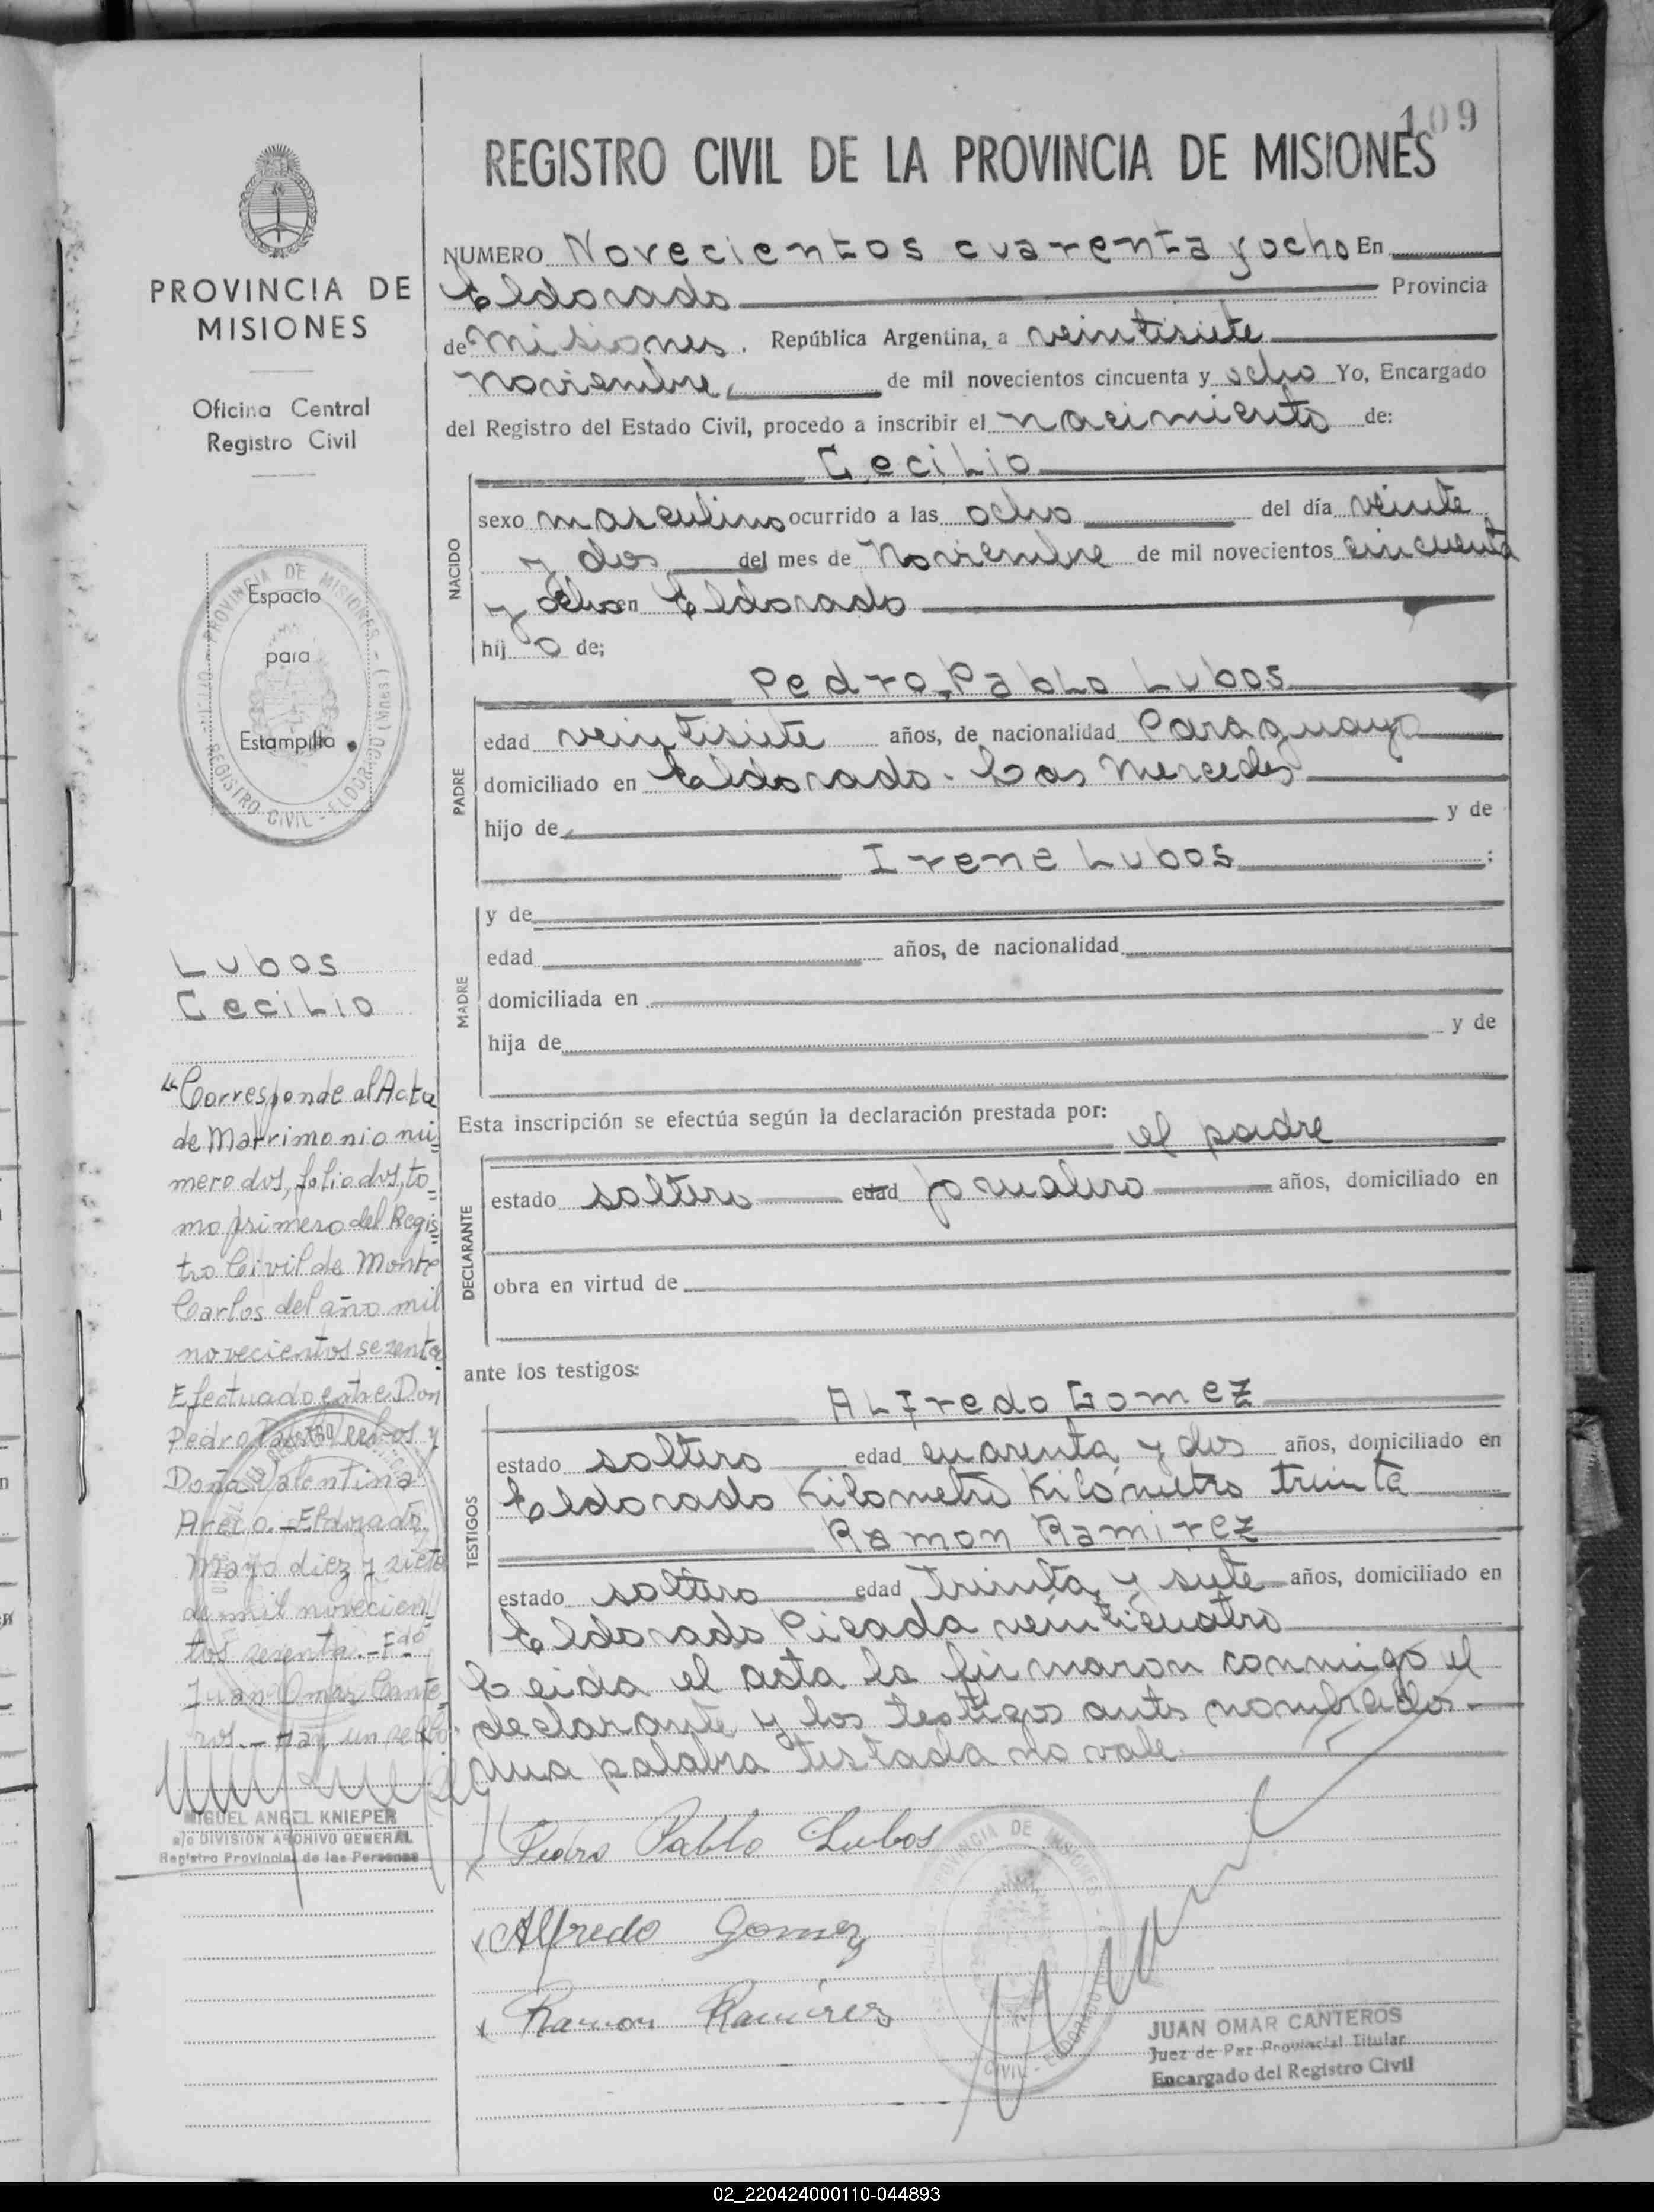 109
REGISTRO CIVIL DE LA PROVINCIA DE MISIONES
PROVINCIA DE
MISIONES
Oficina Central
Registro Civil
Espacio
para
Estampilla
PROVINCIA DE MISIONES
REGISTRO CIVIL - ELDORADO (Mnes)
Lubos
Cecilio
"Corresponde al Acta
de Matrimonio nú=
mero dos, folio dos, to=
mo primero del Regis=
tro Civil de Monte
Carlos del año mil
novecientos sesenta.
Efectuado entre Don
Pedro Pablo Lubos y
Doña Valentina
Areco.- Eldorado
Mayo diez y siete
de mil novecien=
tos sesenta.- Fdo
Juan Omar Cante=
ros.- Hay un sello.
MIGUEL ANGEL KNIEPER
a/c DIVISIÓN ARCHIVO GENERAL
Registro Provincial de las Personas
NUMERO Novecientos cuarenta y ocho En
Eldorado Provincia
de Misiones. República Argentina, a veintisiete
Noviembre, de mil novecientos cincuenta y ocho Yo, Encargado
del Registro del Estado Civil, procedo a inscribir el nacimiento de:
Cecilio
NACIDO
sexo masculino ocurrido a las ocho del día veinte
y dos del mes de Noviembre de mil novecientos cincuenta
y ocho en Eldorado
hij o de;
Pedro Pablo Lubos
PADRE
edad veintisiete años, de nacionalidad Paraguaya
domiciliado en Eldorado - Las Mercedes
hijo de y de
Irene Lubos ;
MADRE
y de
edad años, de nacionalidad
domiciliada en
hija de y de
Esta inscripción se efectúa según la declaración prestada por: el padre
DECLARANTE
estado soltero edad jornalero años, domiciliado en
obra en virtud de
ante los testigos:
Alfredo Gomez
TESTIGOS
estado soltero edad cuarenta y dos años, domiciliado en
Eldorado Kilometro Kilómetro treinta
Ramon Ramirez
estado soltero edad treinta y siete años, domiciliado en
Eldorado Picada veinticuatro
Leida el acta la firmaron conmigo el
declarante y los testigos antes nombrados.-
una palabra testada no vale.
Pedro Pablo Lubos
Alfredo Gomez
Ramon Ramirez
PROVINCIA DE MISIONES
CIVIL - ELDORADO
JUAN OMAR CANTEROS
Juez de Paz Provincial Titular
Encargado del Registro Civil
02_220424000110-044893